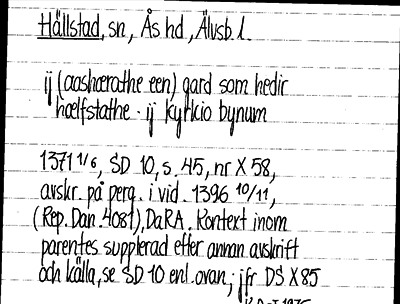 Hällstad, sn, Ås hd, Älvsb. l.
ij (aashærathe een) gard som hedir
hælfstathe. ij kyrkio bynum
1371 1/6, SD 10, s. 45, nr X 58,
avskr. på perg. i vid. 1396 10/11,
(Rep. Dan. 4081), DaRA. Kontext inom
parentes supplerad efter annan avskrift
och källa, se SD 10 enl. ovan; jfr DS X 85